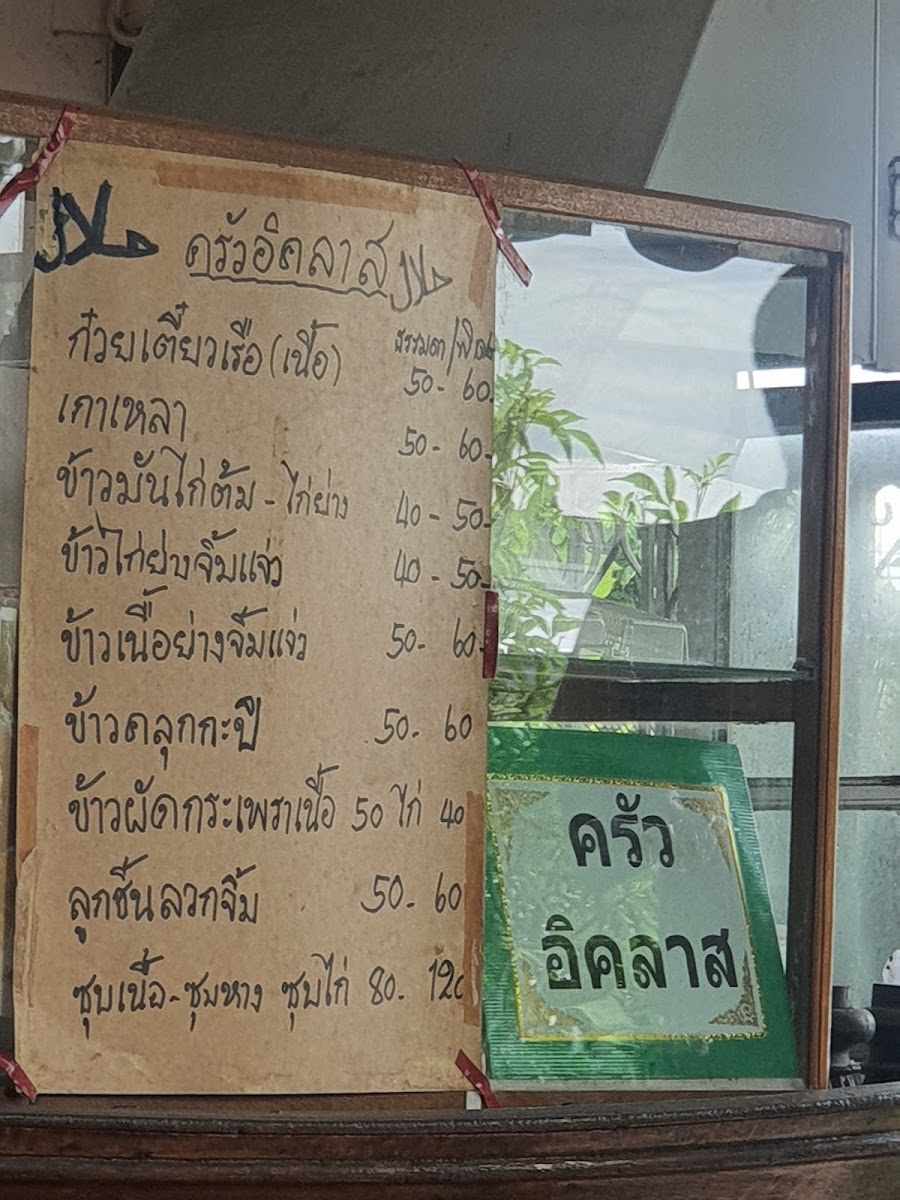 ครัวอิคลาส
ธรรมดา/พิเศษ
ก๋วยเตี๋ยวเรือ(เนื้อ) 50- 60-
เกาเหลา 50- 60-
ข้าวมันไก่ต้ม - ไก่ย่าง 40 - 50-
ข้าวไก่ย่างจิ้มแจ่ว 40 - 50-
ข้าวเนื้อย่างจิ้มแจ่ว 50- 60-
ข้าวคลุกกะปิ 50- 60
ข้าวผัดกระเพราเนื้อ 50 ไก่ 40
ลูกชิ้นลวกจิ้ม 50- 60
ซุบเนื้อ-ซุบหาง ซุบไก่ 80- 120
ครัว
อิคลาส